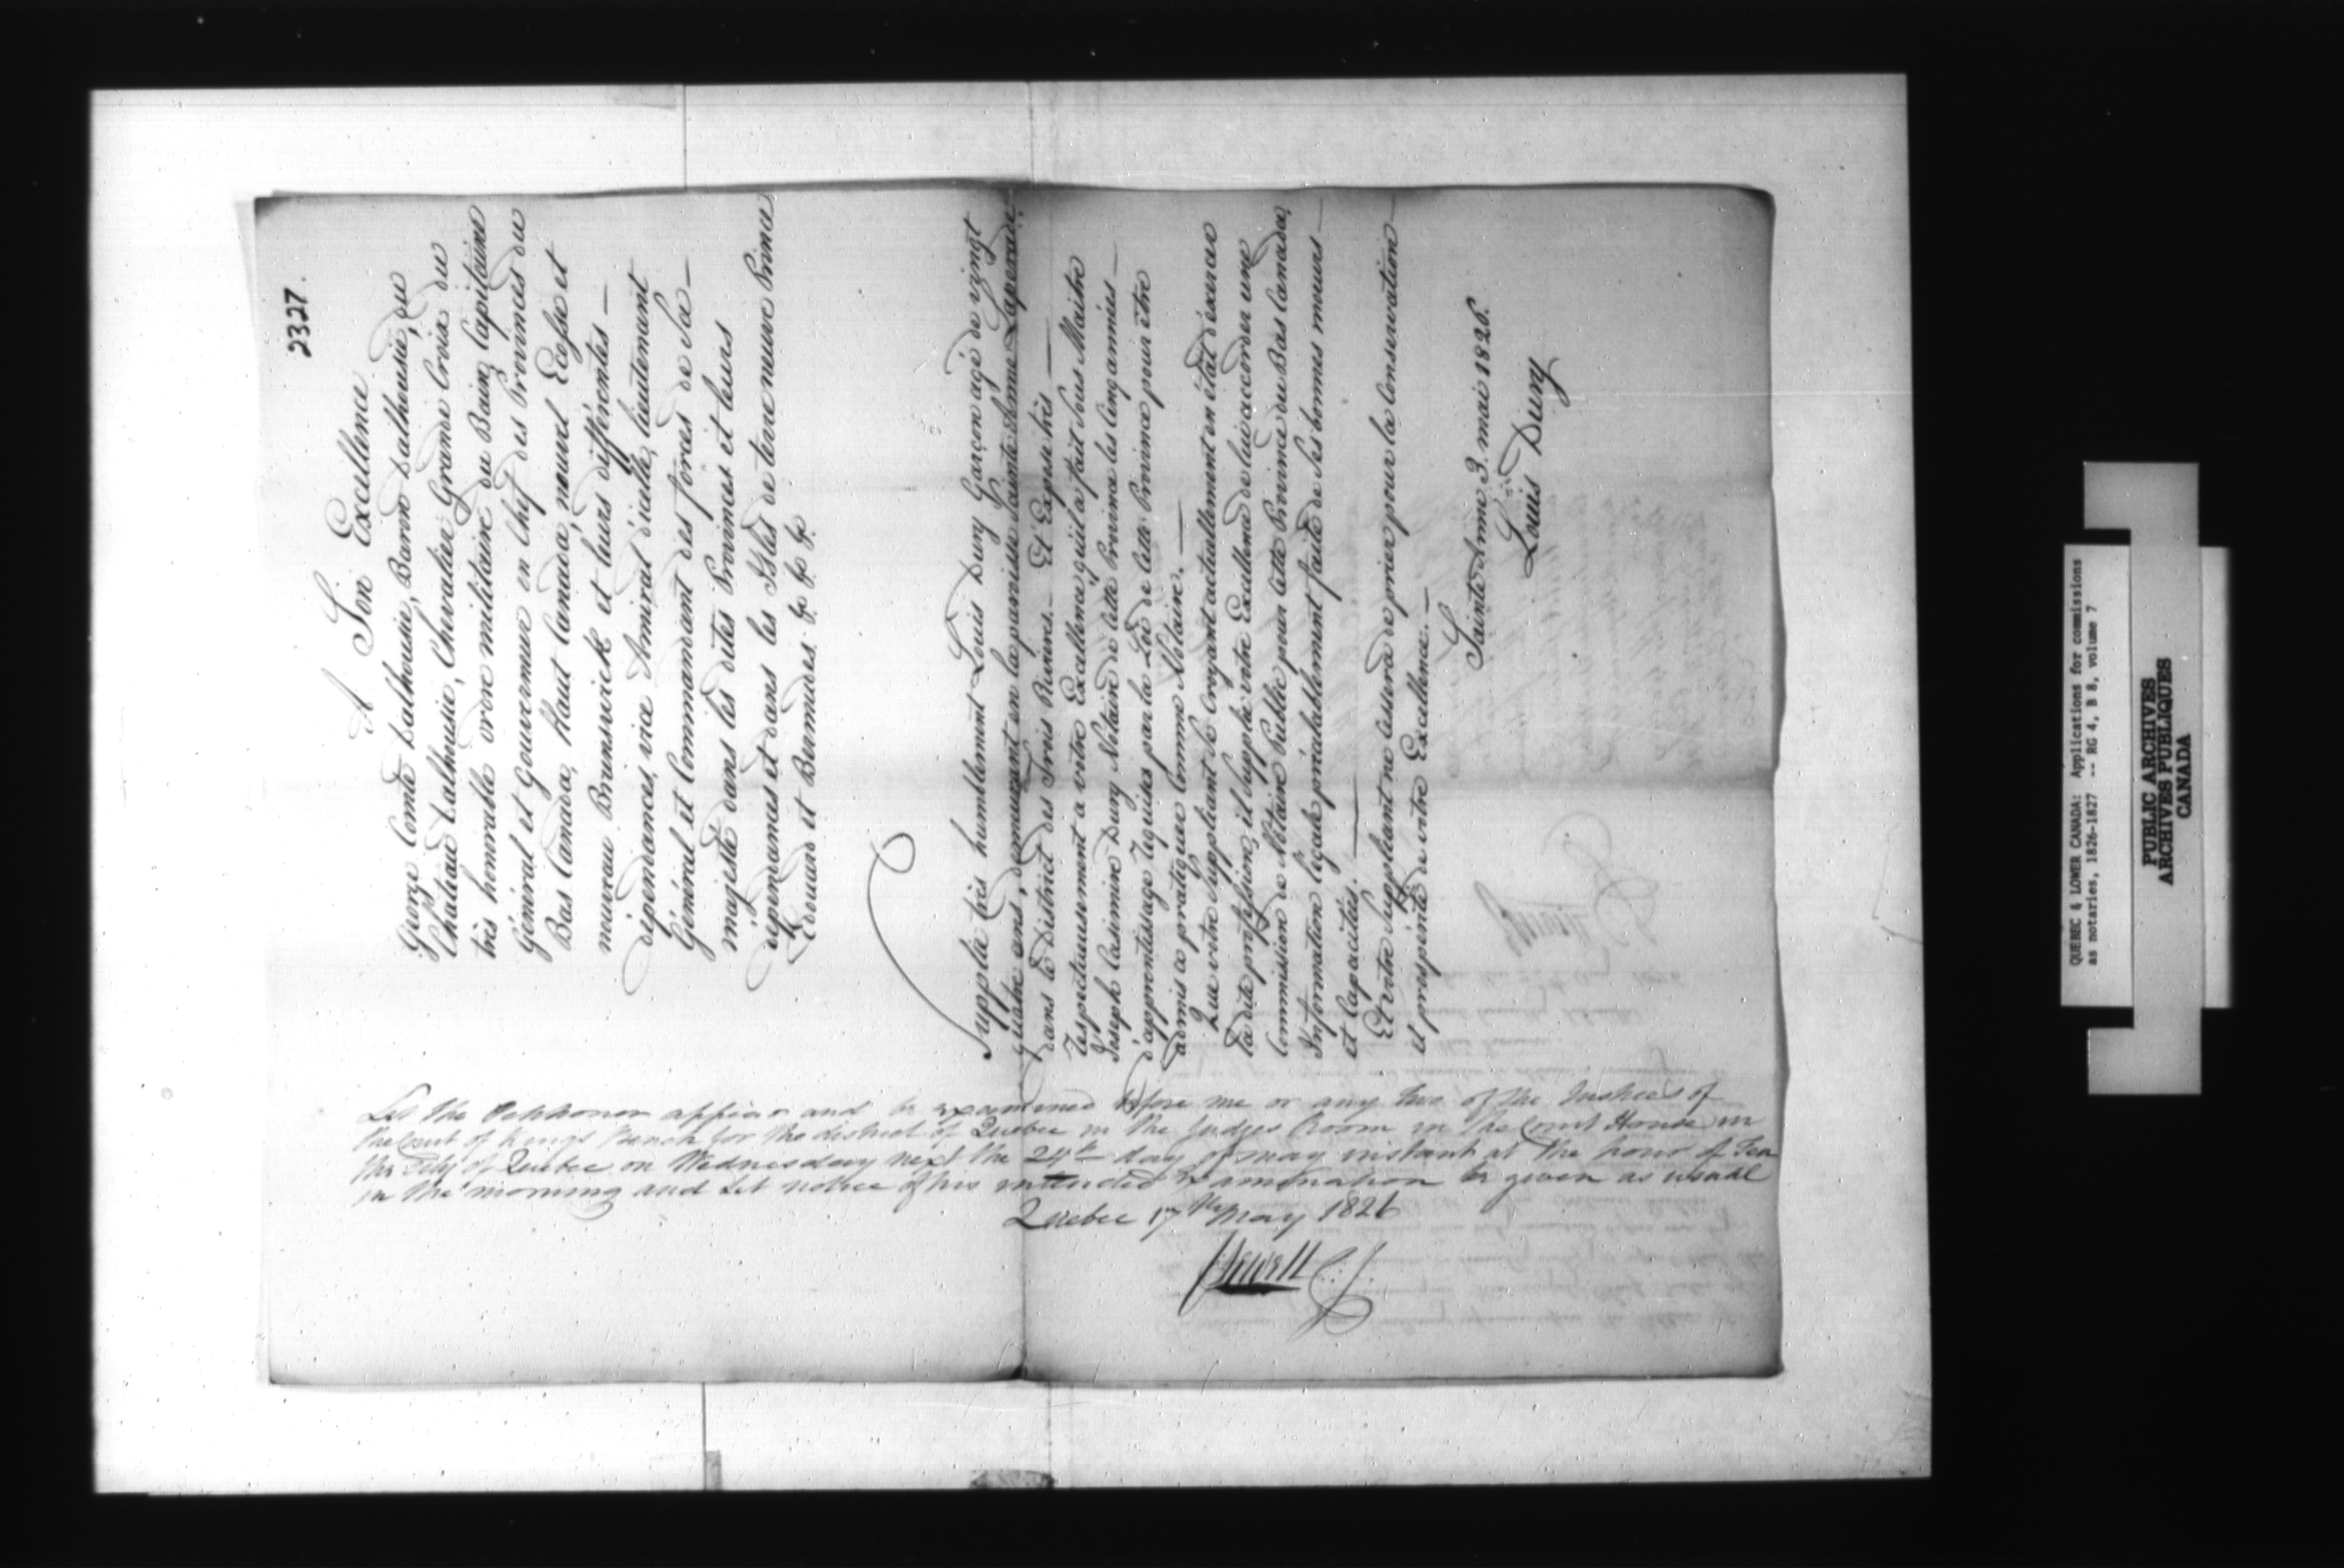 2327.
A Son Excellence
George Comte Dalhousie, Baron Dalhousie, du
Chateau Dalhousie, Chevalier Grande Croix du
très honorable ordre militaire du Bain, Capitaine
Général et Gouverneur en Chef des Provinces du
Bas Canada, Haut Canada, nouvel Ecosse et
nouveau Brunswick et leurs différentes —
dépendances, vice Amiral d'icelle, lieutenant
Général et Commandant des forces de Sa —
majesté dans les dites Provinces et leurs
dépendances et dans les Isles de terre neuve Prince
Edouard et Bermudes. &. &. &. &.
Supplie très humblement Louis Dury Garçon agé de vingt
quatre ans, demeurant en la paroisse Sainte Anne Laperade
dans le District des Trois Rivieres. — Et Expose très —
respectueusement a votre Excellence qu'il a fait sous Maitre
Joseph Casimire Dury Notaire de cette Province les cinq années —
d'apprentissage requises par la Loi de cette Province pour être
admis a pratiquer Comme Notaire. —
Que votre Suppliant se Croyant actuellement en état d'exercer
la dite profession, il Supplie votre Excellence de lui accorder une
Commission de Notaire Public pour cette Province du Bas Canada,
Information légale préalablement faite de Ses bonnes moeurs —
et Capacités. —
Et votre Suppliant ne cessera de prier pour la Conservation —
et prosperité de votre Excellence. —
Sainte Anne 3. mai 1826.
Louis Dury
Let the Petitioner appear and be examined before me or any two of the Justices of
the Court of Kings Bench for the district of Quebec in the Judges Room in the Court House in
the City of Quebec on Wednesday next the 24th day of may instant at the hour of Ten
in the morning and Let notice of his intended Examination be given as usual
Quebec 17th May 1826
Sewell C. J.
QUEBEC & LOWER CANADA: Applications for commissions
as notaries, 1826-1827 -- RG 4, B 8, volume 7
PUBLIC ARCHIVES
ARCHIVES PUBLIQUES
CANADA